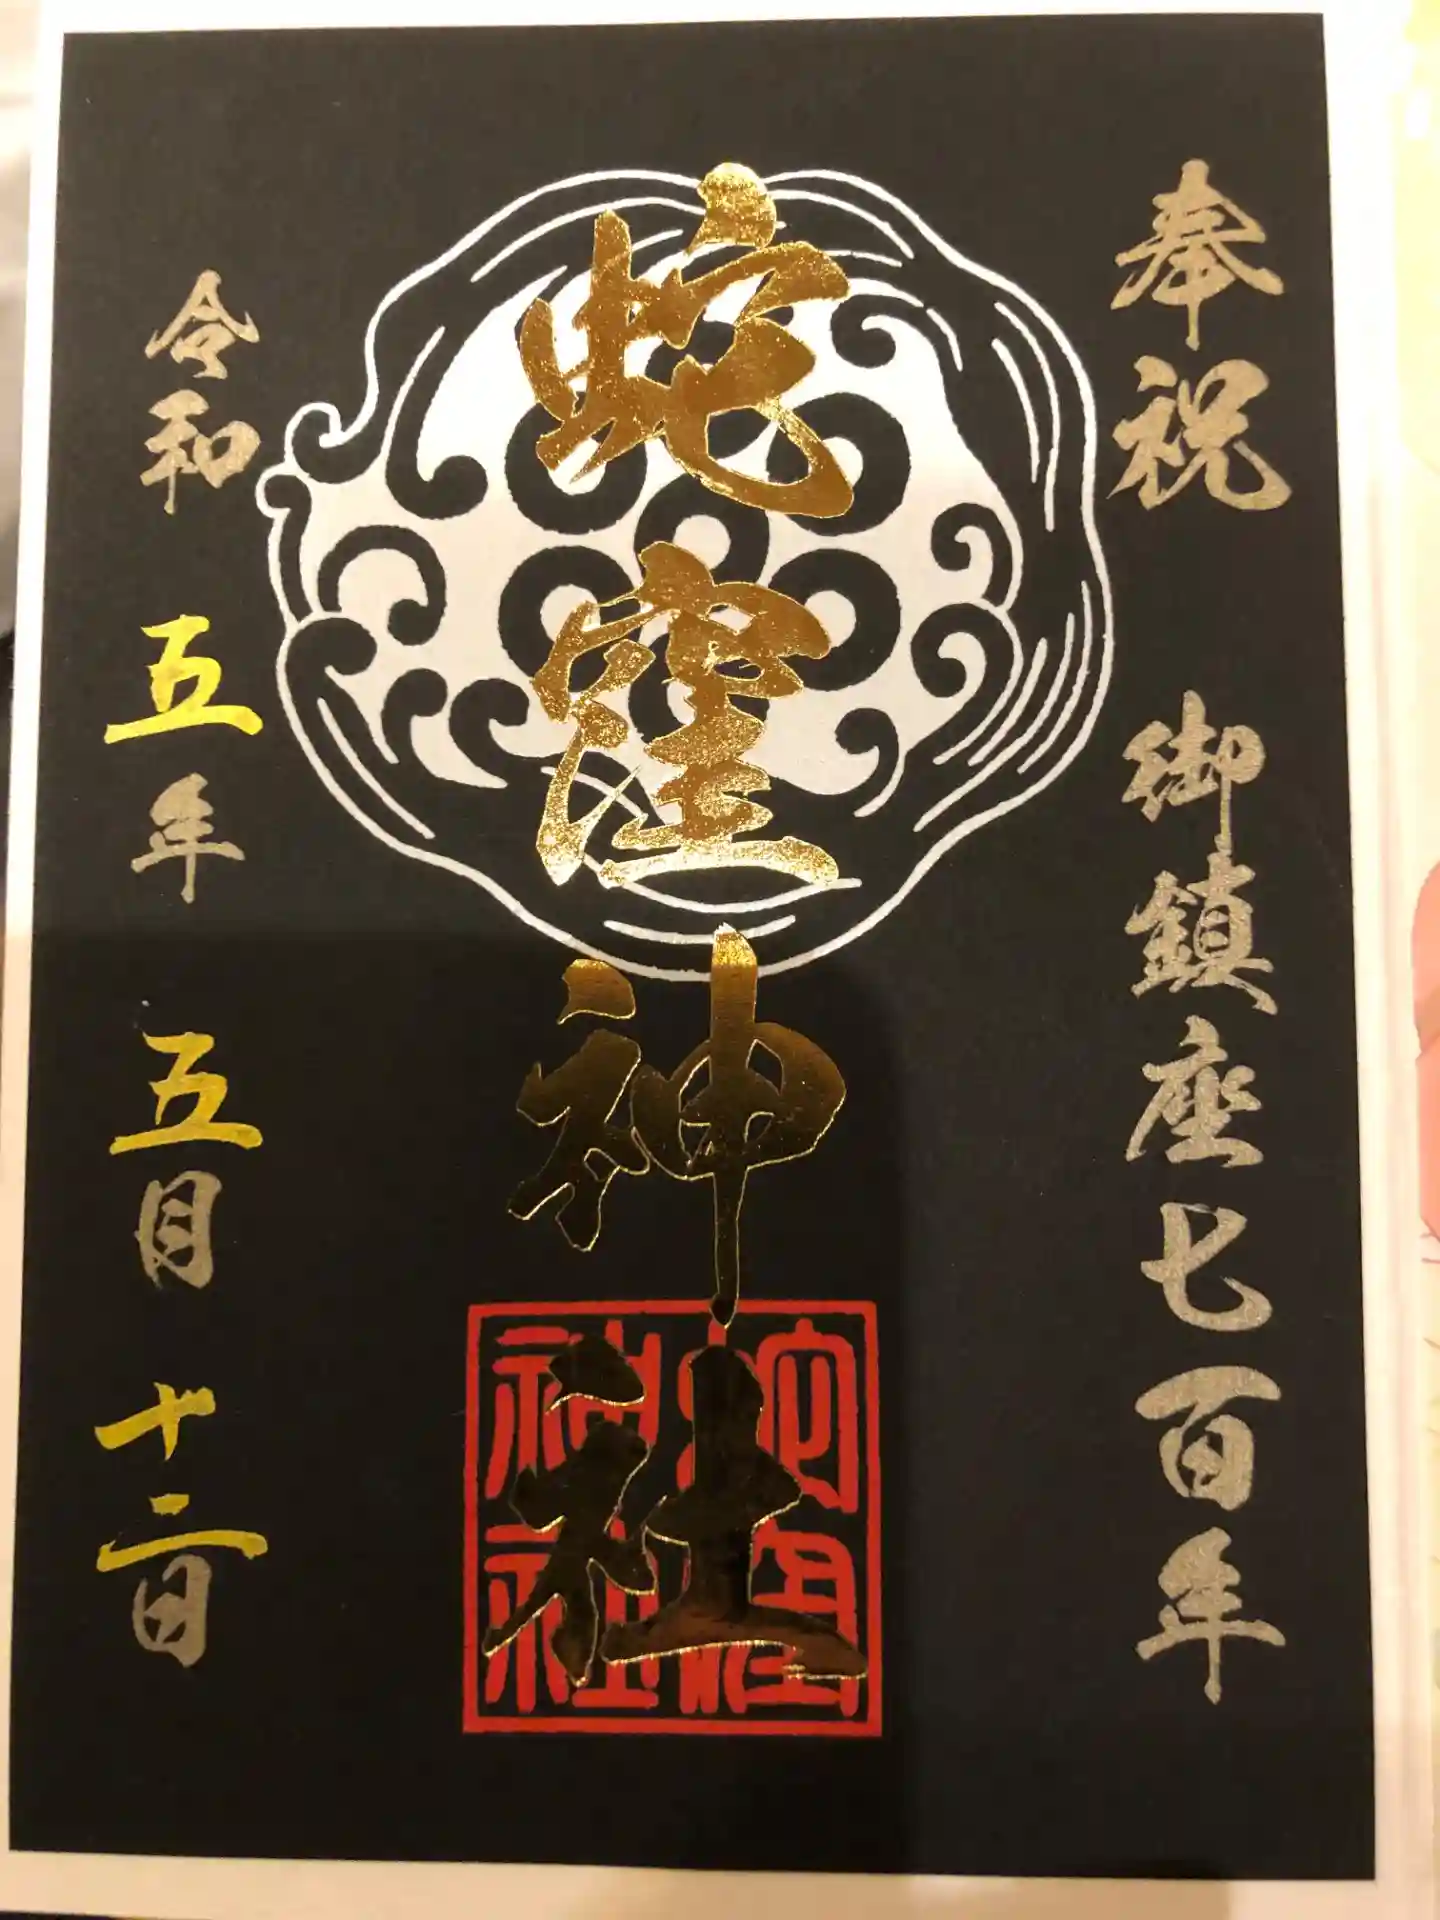 奉祝 御鎮座七百年
蛇窪神社
蛇窪
神社
令和五年五月十二日